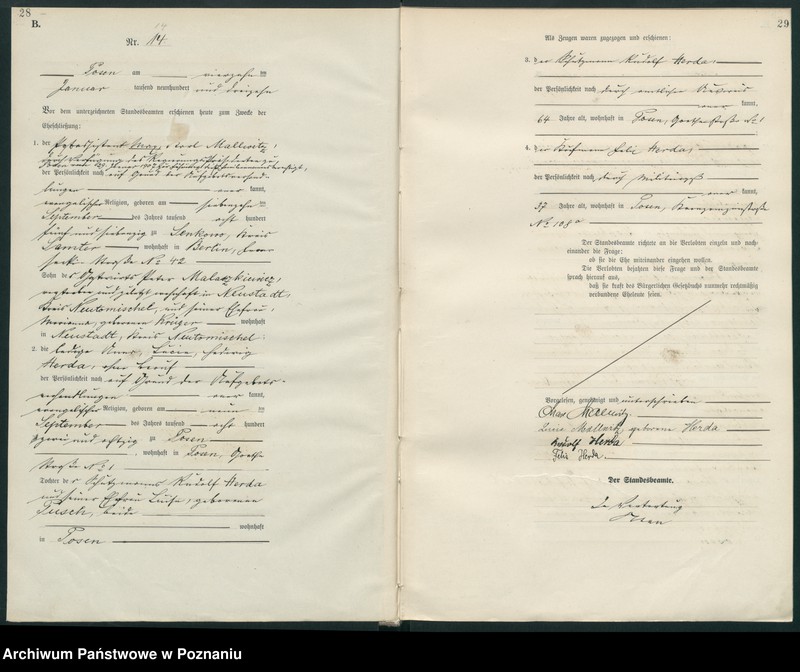 28
B.
Nr. 14
Posen am vierzehn ten
Januar tausend neunhundert und dreizehn
Vor dem unterzeichneten Standesbeamten erschienen heute zum Zwecke der
Eheschließung:
1. der Max Mallwitz,
der Persönlichkeit nach auf Grund der Aufgebotsverhand-
lungen kannt,
evangelischer Religion, geboren am siebzehn ten
September des Jahres tausend acht hundert
fünf und siebenzig zu Lenkowo, Kreis
Samter wohnhaft in Berlin,
Straße No 42
Sohn des Peter
zuletzt wohnhaft in Neustadt,
Kreis Neutomischel, und seiner Ehefrau
geborenen Krüger wohnhaft
in Neustadt, Kreis Neutomischel
2. die ledige Anna, Lucie, Hedwig
Herda, ohne Beruf
der Persönlichkeit nach auf Grund der Aufgebots-
verhandlungen kannt,
evangelischer Religion, geboren am neun ten
September des Jahres tausend acht hundert
zwei und achtzig zu Posen
, wohnhaft in Posen, Goethe
Straße No 1
Tochter des Schutzmanns Rudolf Herda
und seiner Ehefrau Luise, geborenen
Tusch, beide
wohnhaft
in Posen
29
Als Zeugen waren zugezogen und erschienen:
3. der Schutzmann Rudolf Herda,
der Persönlichkeit nach durch
kannt,
64 Jahre alt, wohnhaft in Posen, Goethestraße No 1
4. der Kaufmann Felix Herda,
der Persönlichkeit nach durch Militärpaß
kannt,
37 Jahre alt, wohnhaft in Posen,
No 108a
Der Standesbeamte richtete an die Verlobten einzeln und nach-
einander die Frage:
ob sie die Ehe miteinander eingehen wollen.
Die Verlobten bejahten diese Frage und der Standesbeamte
sprach hierauf aus,
daß sie kraft des Bürgerlichen Gesetzbuchs nunmehr rechtmäßig
verbundene Eheleute seien.
Vorgelesen, genehmigt und unterschrieben
Max Mallwitz.
Lucie Mallwitz geborene Herda
Rudolf Herda
Felix Herda.
Der Standesbeamte.
In Vertretung
Archiwum Państwowe w Poznaniu